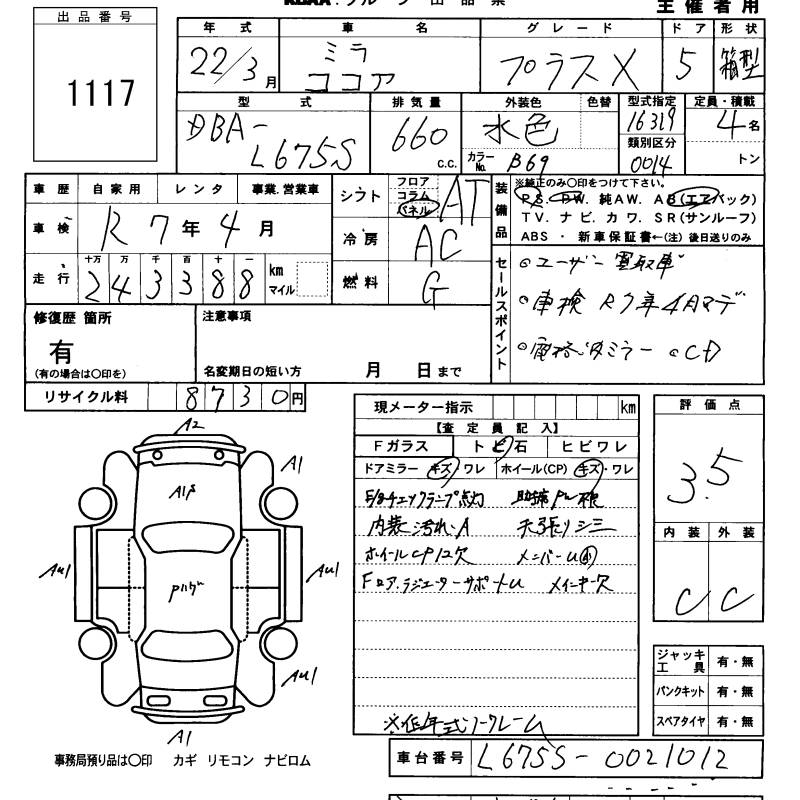 グループ 出品票
主催者用
出品番号
1117
年式 車名 グレード ドア 形状
22/3月 ミラ ココア プラスX 5 箱型
型式 排気量 外装色 色替 型式指定 定員・積載
DBA-L675S 660 c.c. 水色 16319 4名
カラーNo. B69 類別区分 0014 トン
車歴 自家用 レンタ 事業.営業車
車検 R7年4月
走行 十万 万 千 百 十 一
243388 km マイル
シフト フロア コラム パネル AT
冷房 AC
燃料 G
装備品
※純正のみ〇印をつけて下さい。
P.S. P.W. 純AW. AB(エアバック)
TV. ナビ. カワ. SR(サンルーフ)
ABS ・ 新車保証書←(注)後日送りのみ
セールスポイント
○ユーザー買取車
○車検 R7年4月マデ
○電格ミラー ○CD
修復歴 箇所
有
(有の場合は〇印を)
注意事項
名変期日の短い方 月 日まで
リサイクル料 8730円
現メーター指示 km
【査定員記入】
Fガラス トビ石 ヒビワレ
ドアミラー キズ,ワレ ホイール(CP) キズ,ワレ
チェックランプ点灯
内装汚れ・A 天張りシミ
ホイールCP1ケ欠 メンバーU
Fロア,ラジエーターサポートU メインキー欠
※低年式ノークレーム
評価点
3.5
内装 外装
C C
ジャッキ 工具 有・無
パンクキット 有・無
スペアタイヤ 有・無
A2
A1
AU1
AU1
AU1
A1
事務局預り品は〇印 カギ リモコン ナビロム
車台番号 L675S-0021012